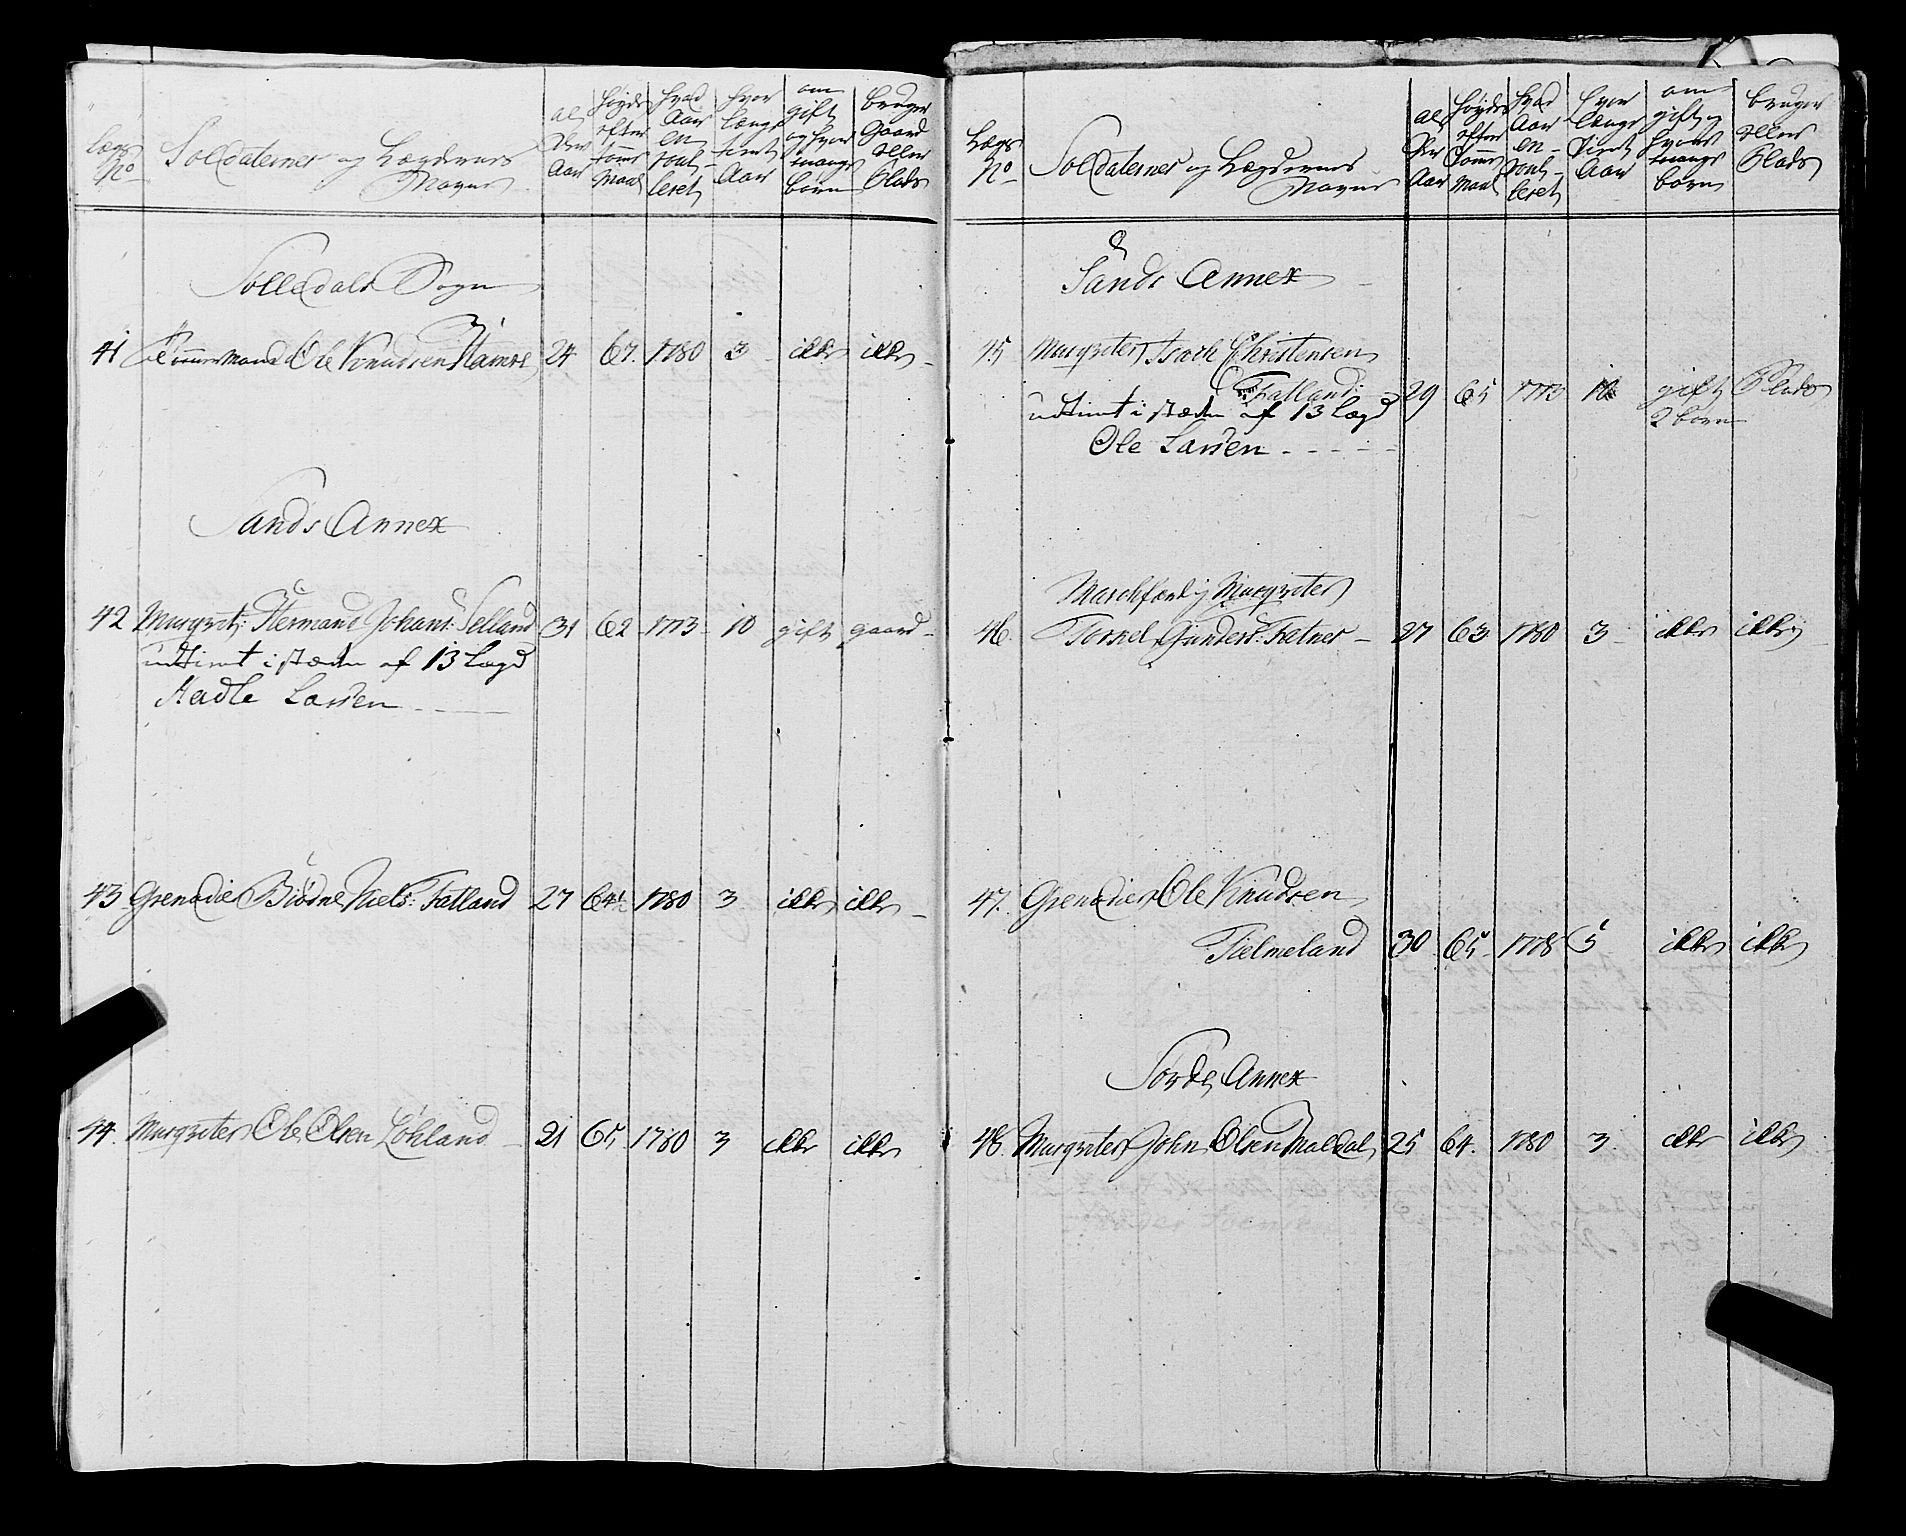 Lægs No
Soldaterner og Lægdernes Navne
al der Aar
høyde efter tomme Maal
hvad Aar en roul- leret
hvor længe tient Aar
om gift og hvor mange børn
bruger Gaard eller Plads
Solledals Sogn
41 Timmermand Ole Knudsen Hamre 24 67. 1780 3 ikke ikke
Sands Annex
42 Musqvet: Hermand Johans: Selland 31 62 1773 10 gift gaard
udtient i stæden af 13 Lægd
Hadle Larsen
43 Grenadier Biødne Niels: Fatland 27 64½ 1780 3 ikke ikke
44. Musqveter Ole Olsen Løhland 21 65 1780 3 ikke ikke
Lægs No
Soldaterner og Lægdernes Navne
al der Aar
høyde efter Tomme Maal
hvad Aar en- roul- leret
hvor længe tient Aar
om gift og hvor mange børn
bruger eller Plads
Sands Annex
45 Musqveter Isach Christensen
Fatland 29 65 1773 10 gift Plads
udtient i stæden af 13 Lægd 2 born
Ole Larsen
Marchfærdig Musqveter
46. Torkel Gunders: Tratnes 27 63 1780 3 ikke ikke
47. Grenadier Ole Knudsen
Tielmeland 30 65 1778 5 ikke ikke
Jorde Annex
48. Musqveter John Olsen Maldal 25 64. 1780 3. ikke ikke